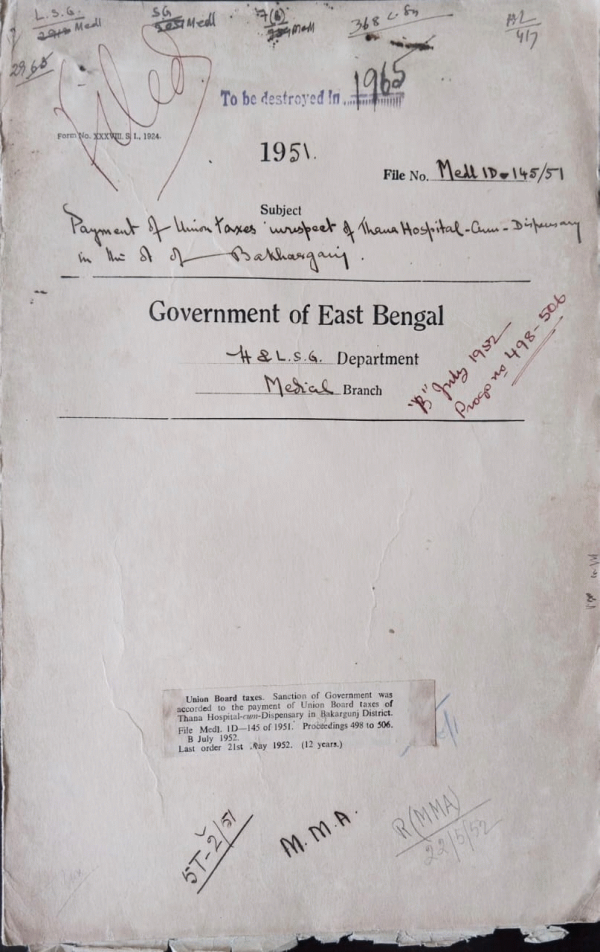 L.S.G.
Medl
SG
Medl
7(B)
Medl
368
AL
4/7
2965
Filed
To be destroyed in 1965
Form No. XXXVIII. S. I., 1924.
1951.
File No. Medl 1D-145/51
Subject
Payment of Union taxes in respect of Thana Hospital-Cum-Dispensary
in the dt of Bakharganj.
Government of East Bengal
H & L.S.G. Department
Medical Branch
"B" July 1952
Progs no 498-506
Union Board taxes. Sanction of Government was
accorded to the payment of Union Board taxes of
Thana Hospital-cum-Dispensary in Bakargunj District.
File Medl. 1D—145 of 1951. Proceedings 498 to 506.
B July 1952.
Last order 21st May 1952. (12 years.)
5T-2/51
M.M.A.
R(MMA)
22/5/52